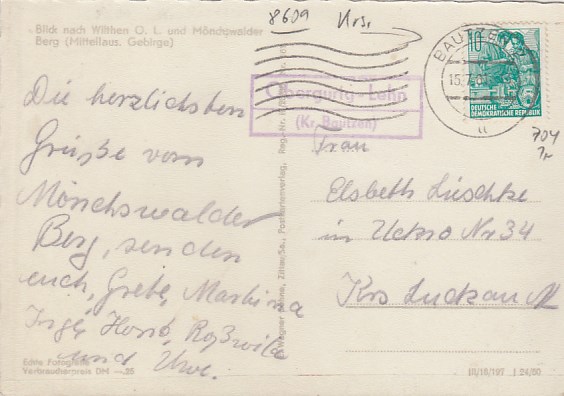 Blick nach Wilthen O. L. und Mönchswalder
Berg (Mittellaus. Gebirge)
8609 Krs.
Die herzlichsten
Grüße vom
Mönchswalder
Berg, senden
euch, Grete, Martina
Inge, Horst, Roßwita
und Uwe.
Echte Fotografie
Verbraucherpreis DM —.25
Obergurig-Lehn
(Kr. Bautzen)
BAUTZEN
15.7.61
10
DEUTSCHE
DEMOKRATISCHE REPUBLIK
704
Frau
Elsbeth Lüschke
in Uckro Nr 34
Krs Luckau
III/18/197 J 24/60